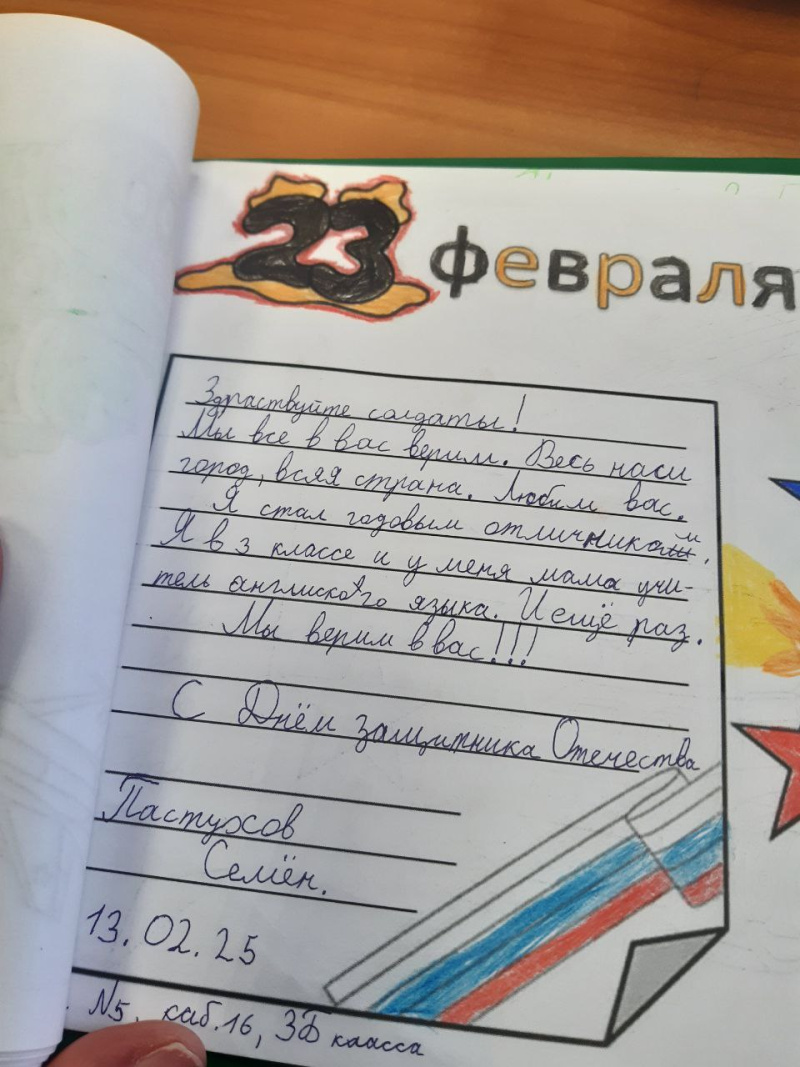 23 февраля
Здраствуйте солдаты!
Мы все в вас верим. Весь наш
город, всяя страна. Любим вас.
Я стал годовым отличником.
Я в 3 классе и у меня мама учи-
тель англиского языка. И ещё раз.
Мы верим в вас!!!
С Днём защитника Отечества
Пастухов
Семён.
13.02.25
№5. каб.16, 3Б класса